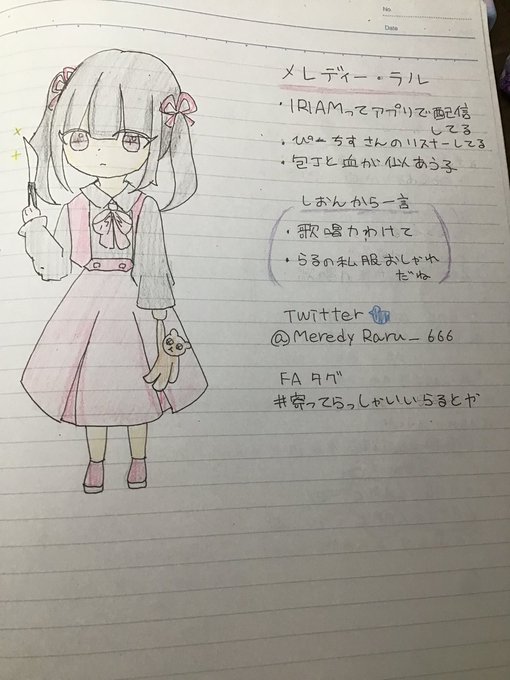 No.
Date
メレディー・ラル
・IRIAMってアプリで配信
してる
・ぴーちすさんのリスナーしてる
・包丁と血が似あう子
しおんから一言
・歌唱力わけて
・らるの私服おしゃれ
だね
Twitter
@Meredy Raru_666
FAタグ
#寄ってらっしゃいいらるとか